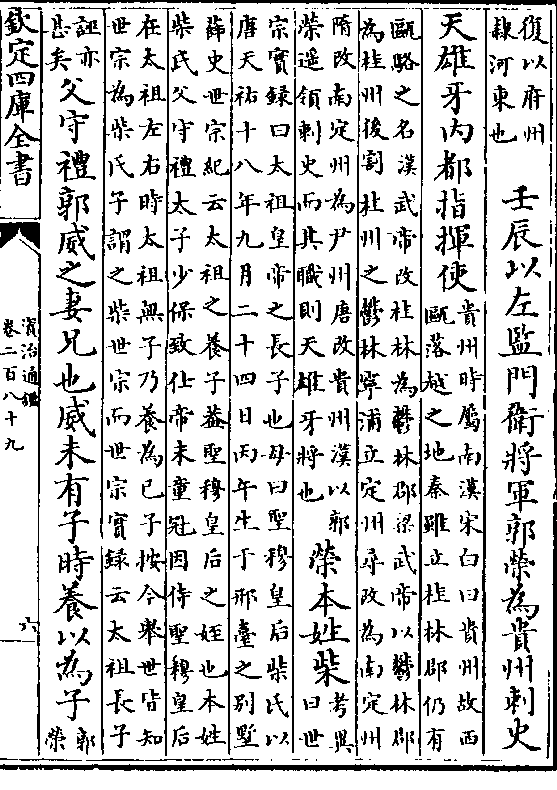 復以府州
隸河東也
壬辰以左監門衛將軍郭榮為貴州刺史
天雄牙内都指揮使
貴州時屬南漢宋白曰貴州故西
甌落越之地秦雖立桂林郡仍有
甌駱之名漢武帝改桂林為鬱林郡梁武帝以鬱林郡
為桂州後割桂州之鬱林寧浦立定州尋改為南定州
隋改南定州為尹州唐改貴州漢以郭
榮遥領刺史而其職則天雄牙將也
榮本姓柴
考異
曰世
宗實録曰太祖皇帝之長子也母曰聖穆皇后柴氏以
唐天祐十八年九月二十四日丙午生于邢臺之别墅
薛史世宗紀云太祖之養子葢聖穆皇后之姪也本姓
柴氏父守禮太子少保致仕帝未童冠因侍聖穆皇后
在太祖左右時太祖無子乃養為已子按今舉世皆知
世宗為柴氏子謂之柴世宗而世宗實録云太祖長子
誣亦
甚矣
父守禮郭威之妻兄也威未有子時養以為子
郭
榮
欽定四庫全書
資治通鑑
卷二百八十九
六